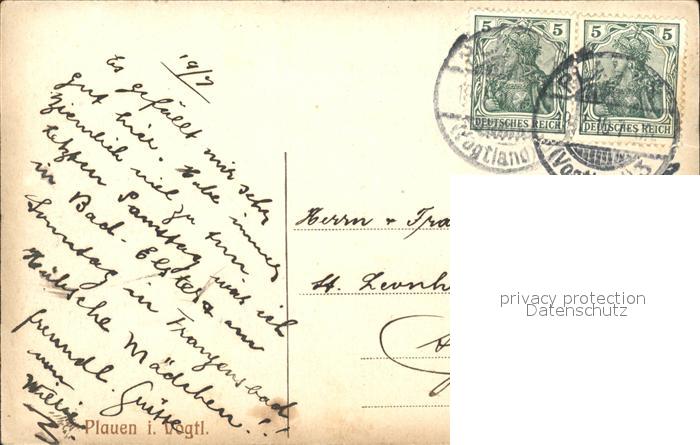 19/7
Es gefällt mir sehr
gut hier. Habe immer
ziemlich viel zu tun
letzten Samstag war ich
in Bad-Elster & am
Sonntag in Franzensbad,
Hübsche Mädchen!!
freundl. Grüsse
Plauen i. Vogtl.
5 5
DEUTSCHES REICH
5 5
DEUTSCHES REICH
(Vogtland)
Herrn & Fra
St. Leonh
privacy protection
Datenschutz